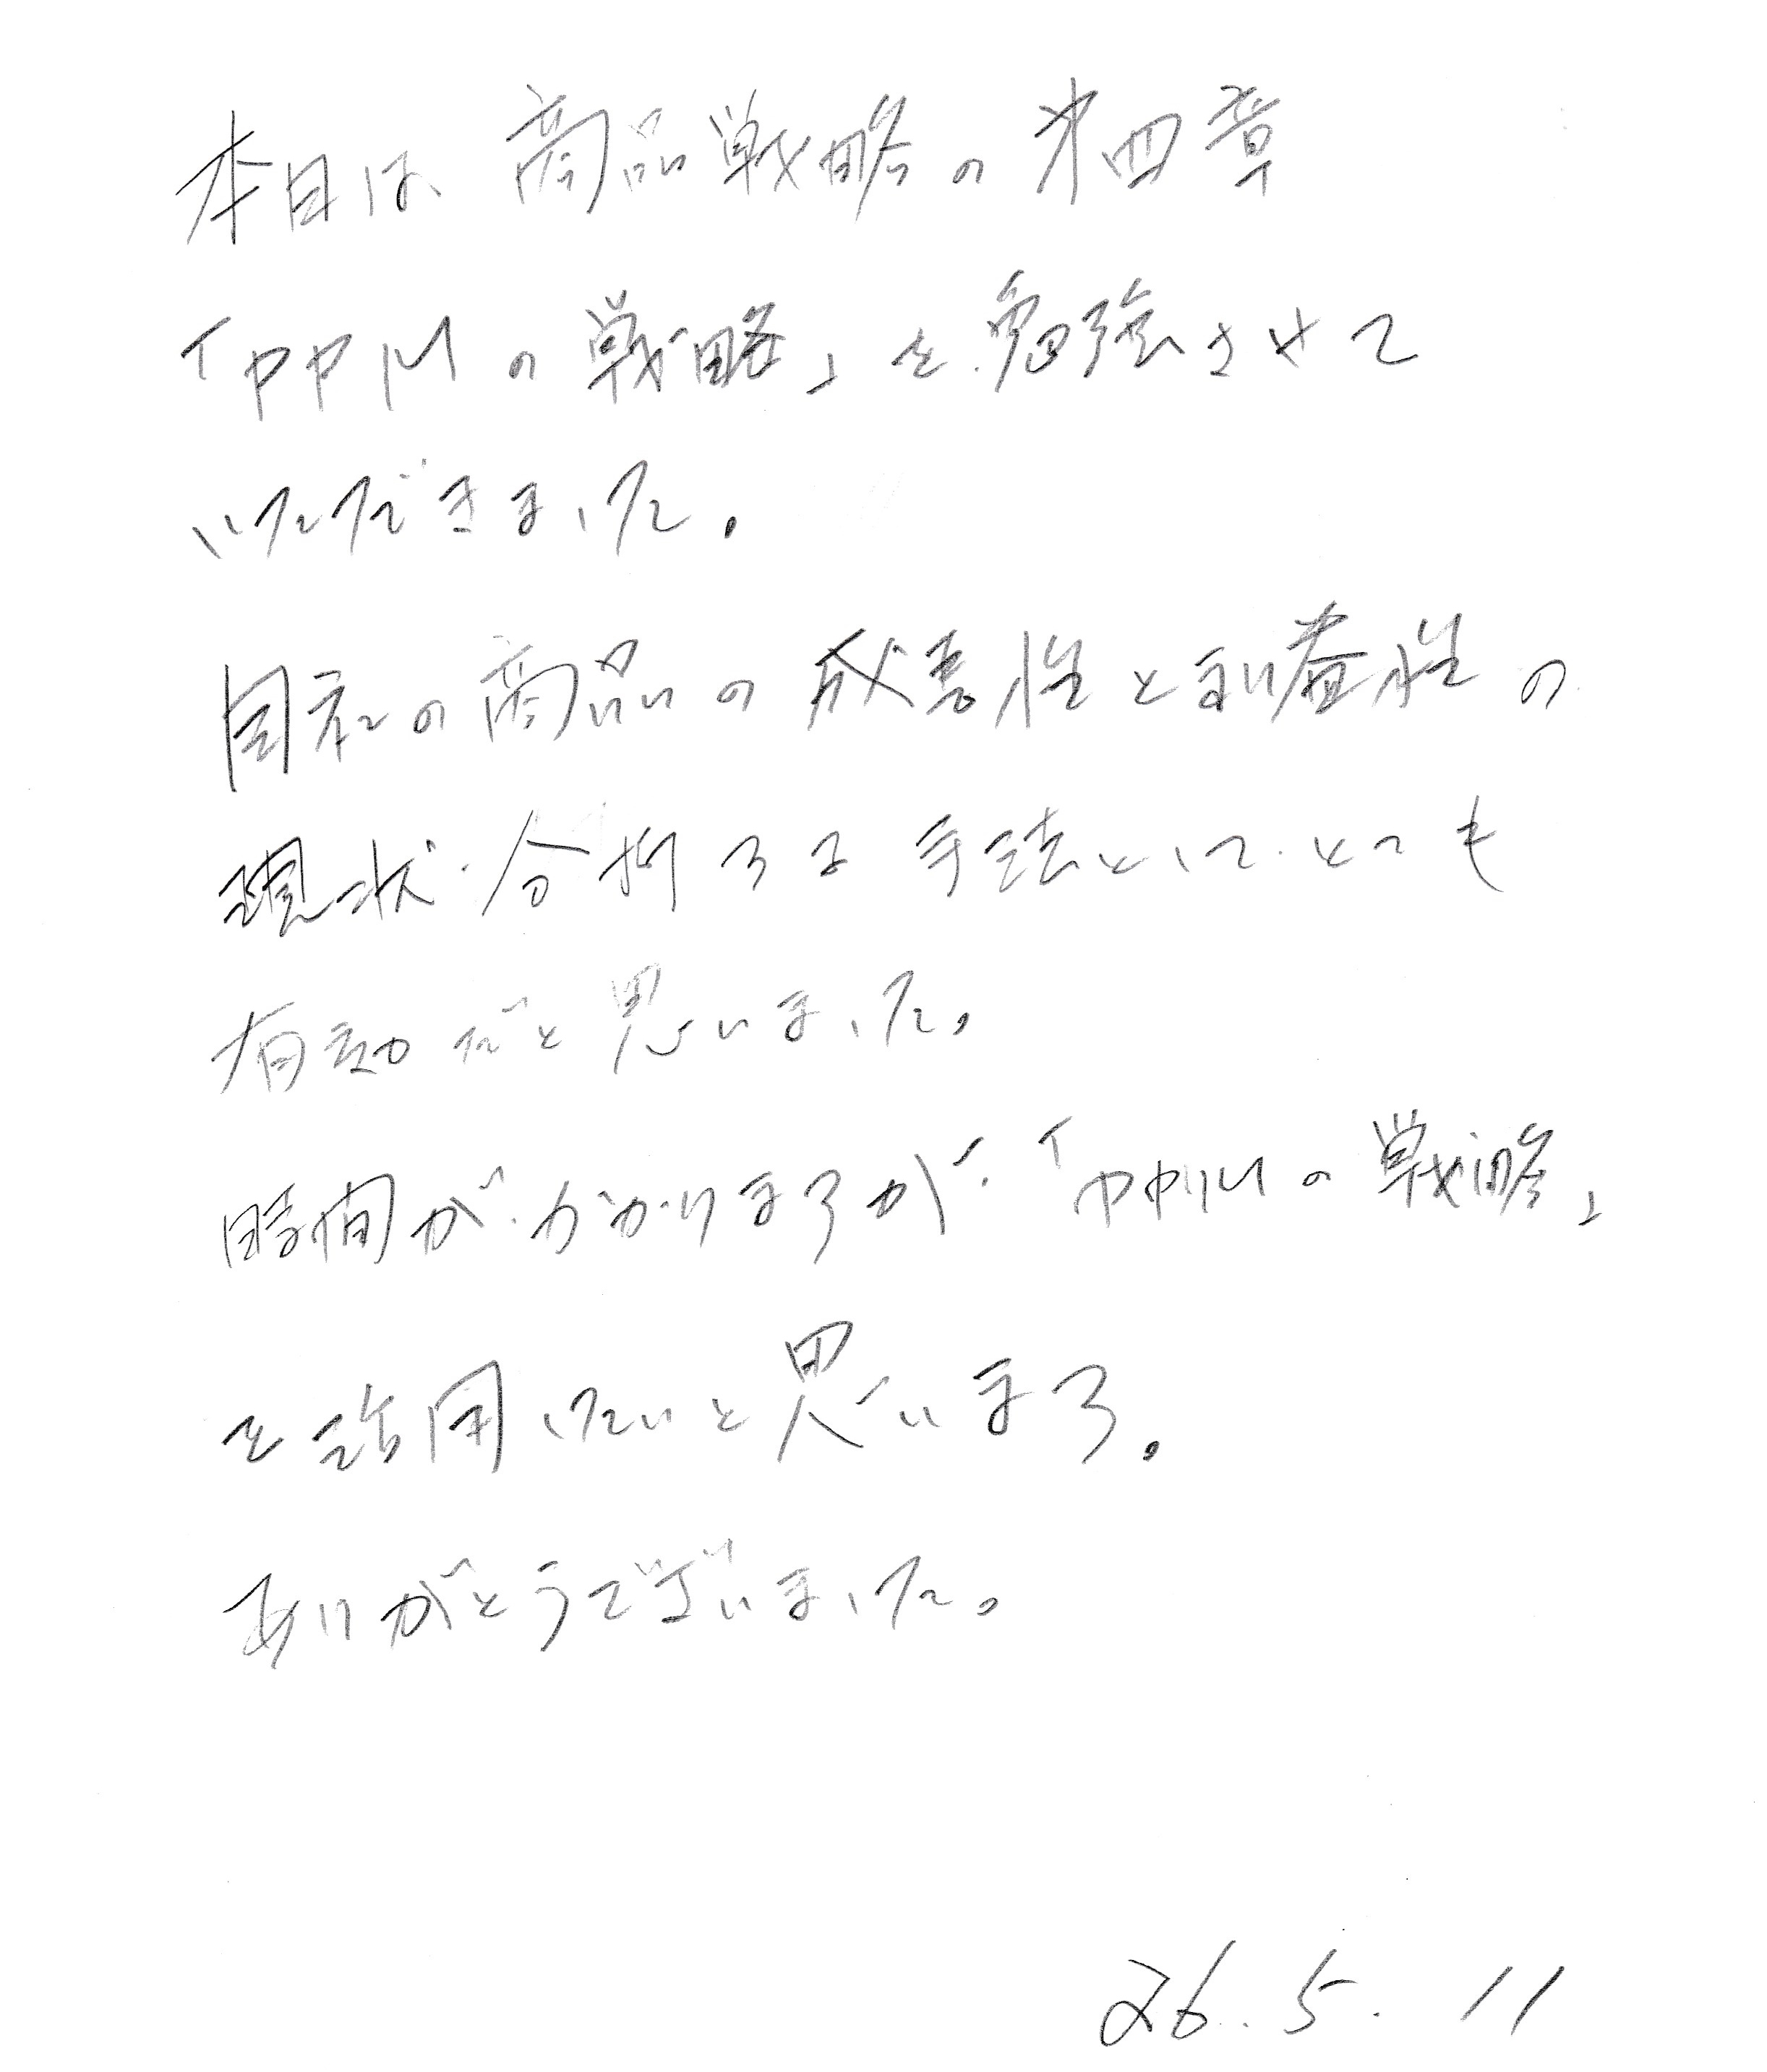 本日は商品戦略の第四章
「PPMの戦略」を勉強させて
いただきました。
自社の商品の成長性と利益性の
現状分析する手法としてとても
有効だと思いました。
時間がかかりますが、「PPMの戦略」
を活用したいと思います。
ありがとうございました。
26.5.11